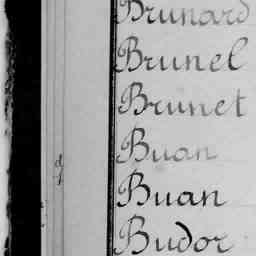 Brunard
Brunel
Brunet
Buan
Buan
Budor